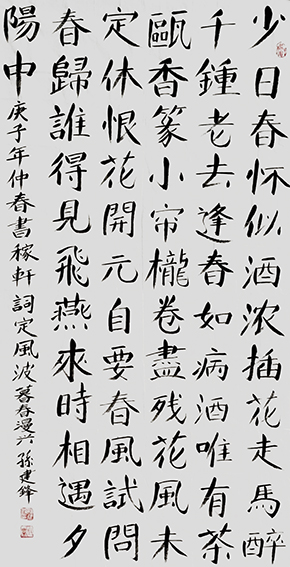 少日春怀似酒浓插花走馬醉
千鍾老去逢春如病酒唯有茶
甌香篆小帘櫳卷盡残花風未
定休恨花開元自要春風試問
春歸誰得見飛燕來時相遇夕
陽中 庚子年仲春書稼軒詞定風波暮春漫兴 孫建鋒